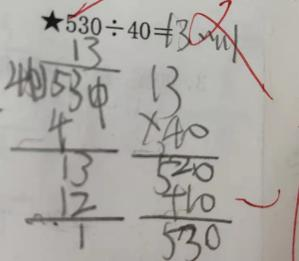 ★530÷40=13
13
40)530
4
13
12
1
13
×40
520
+10
530